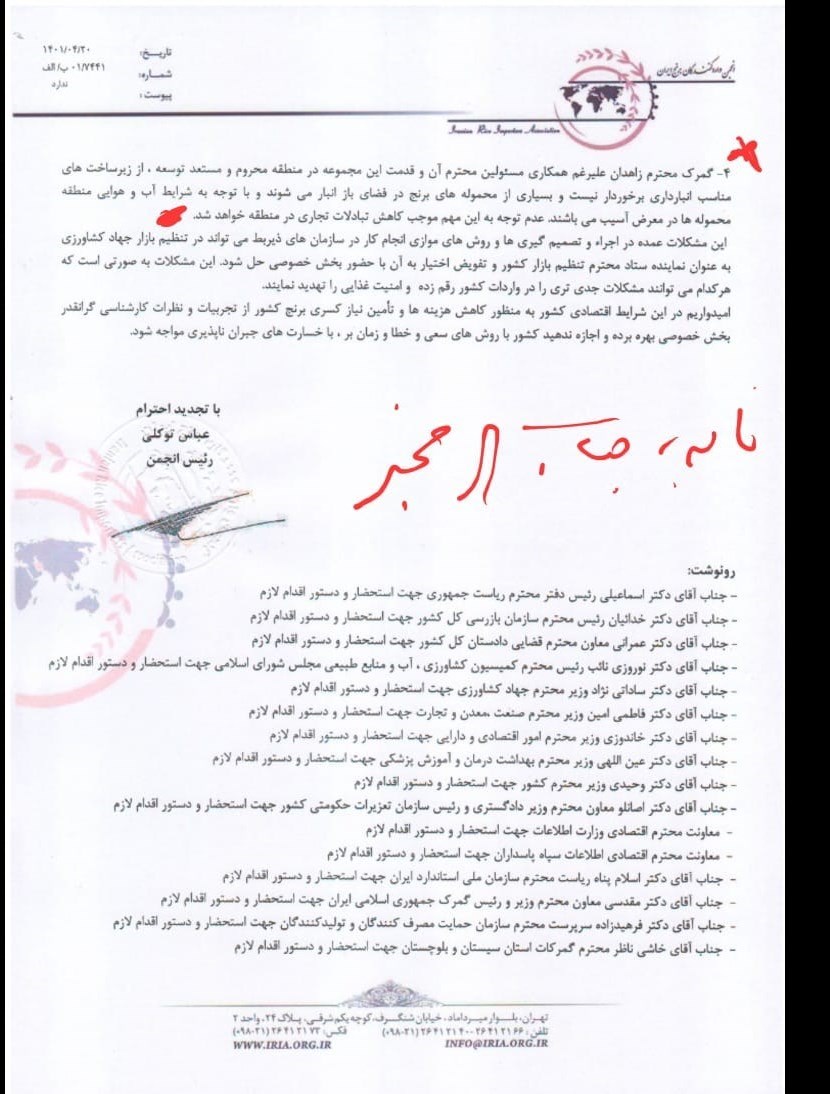 انجمن واردکنندگان برنج ایران
Iranian Rice Importers Association
تاریخ: ۱۴۰۱/۰۴/۲۰
شماره: ۰۱/۷۴۴۱/ب/الف
پیوست: ندارد
۴- گمرک محترم زاهدان علیرغم همکاری مسئولین محترم آن و قدمت این مجموعه در منطقه محروم و مستعد توسعه ، از زیرساخت های
مناسب انبارداری برخوردار نیست و بسیاری از محموله های برنج در فضای باز انبار می شوند و با توجه به شرایط آب و هوایی منطقه
محموله ها در معرض آسیب می باشند. عدم توجه به این مهم موجب کاهش تبادلات تجاری در منطقه خواهد شد.
این مشکلات عمده در اجراء و تصمیم گیری ها و روش های موازی انجام کار در سازمان های ذیربط می تواند در تنظیم بازار جهاد کشاورزی
به عنوان نماینده ستاد محترم تنظیم بازار کشور و تفویض اختیار به آن با حضور بخش خصوصی حل شود. این مشکلات به صورتی است که
هرکدام می توانند مشکلات جدی تری را در واردات کشور رقم زده و امنیت غذایی را تهدید نمایند.
امیدواریم در این شرایط اقتصادی کشور به منظور کاهش هزینه ها و تأمین نیاز کسری برنج کشور از تجربیات و نظرات کارشناسی گرانقدر
بخش خصوصی بهره برده و اجازه ندهید کشور با روش های سعی و خطا و زمان بر ، با خسارت های جبران ناپذیری مواجه شود.
با تجدید احترام
عباس توکلی
رئیس انجمن
نامه به جناب مخبر
رونوشت:
- جناب آقای دکتر اسماعیلی رئیس دفتر محترم ریاست جمهوری جهت استحضار و دستور اقدام لازم
- جناب آقای دکتر خدائیان رئیس محترم سازمان بازرسی کل کشور جهت استحضار و دستور اقدام لازم
- جناب آقای دکتر عمرانی معاون محترم قضایی دادستان کل کشور جهت استحضار و دستور اقدام لازم
- جناب آقای دکتر نوروزی نائب رئیس محترم کمیسیون کشاورزی ، آب و منابع طبیعی مجلس شورای اسلامی جهت استحضار و دستور اقدام لازم
- جناب آقای دکتر ساداتی نژاد وزیر محترم جهاد کشاورزی جهت استحضار و دستور اقدام لازم
- جناب آقای دکتر فاطمی امین وزیر محترم صنعت ،معدن و تجارت جهت استحضار و دستور اقدام لازم
- جناب آقای دکتر خاندوزی وزیر محترم امور اقتصادی و دارایی جهت استحضار و دستور اقدام لازم
- جناب آقای دکتر عین اللهی وزیر محترم بهداشت درمان و آموزش پزشکی جهت استحضار و دستور اقدام لازم
- جناب آقای دکتر وحیدی وزیر محترم کشور جهت استحضار و دستور اقدام لازم
- جناب آقای دکتر اصانلو معاون محترم وزیر دادگستری و رئیس سازمان تعزیرات حکومتی کشور جهت استحضار و دستور اقدام لازم
- معاونت محترم اقتصادی وزارت اطلاعات جهت استحضار و دستور اقدام لازم
- معاونت محترم اقتصادی اطلاعات سپاه پاسداران جهت استحضار و دستور اقدام لازم
- جناب آقای دکتر اسلام پناه ریاست محترم سازمان ملی استاندارد ایران جهت استحضار و دستور اقدام لازم
- جناب آقای دکتر مقدسی معاون محترم وزیر و رئیس گمرک جمهوری اسلامی ایران جهت استحضار و دستور اقدام لازم
- جناب آقای دکتر فرهیدزاده سرپرست محترم سازمان حمایت مصرف کنندگان و تولیدکنندگان جهت استحضار و دستور اقدام لازم
- جناب آقای خاشی ناظر محترم گمرکات استان سیستان و بلوچستان جهت استحضار و دستور اقدام لازم
تهران، بلوار میرداماد، خیابان شنگرف، کوچه یکم شرقی، پلاک ۲۴، واحد ۲
تلفن : ۶۶ ۲۱ ۲۶۴۱-۴۰ ۲۱ ۲۶۴۱ (۰۹۸-۲۱) فکس: ۷۳ ۲۱ ۲۶۴۱ (۰۹۸-۲۱)
WWW.IRIA.ORG.IR INFO@IRIA.ORG.IR